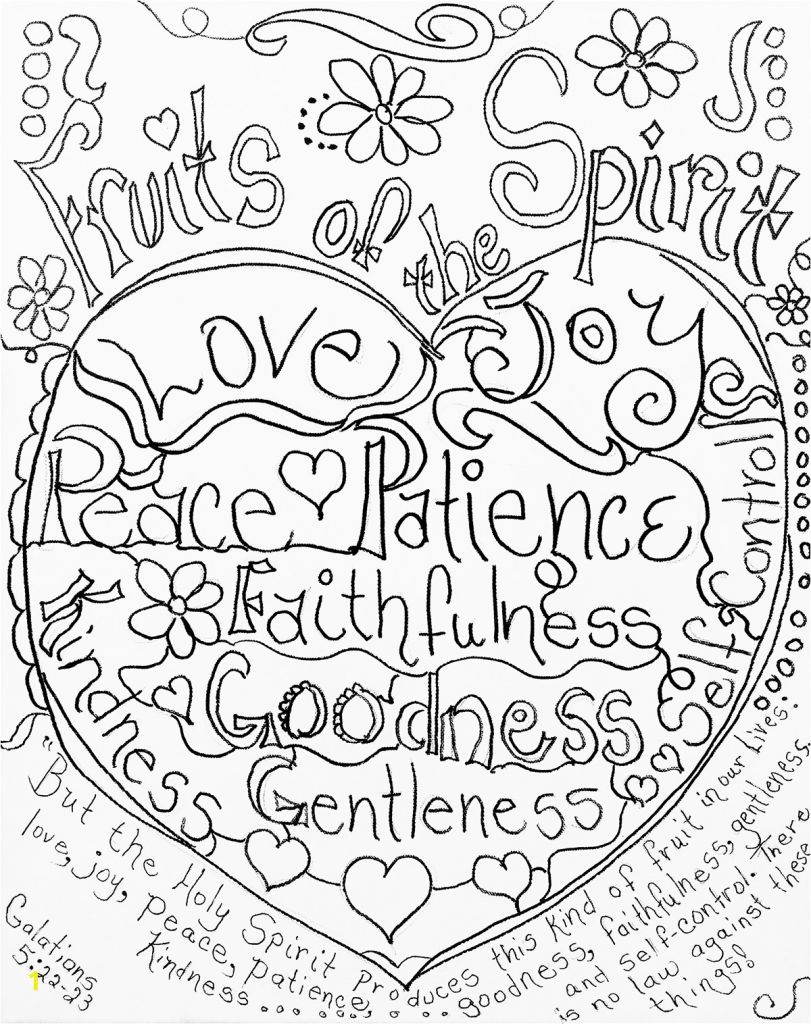 Fruits of the Spirit
Love Joy
Peace Patience
Faithfulness
Kindness
Goodness
Self Control
Gentleness
"But the Holy Spirit produces this kind of fruit in our lives:
love, joy, peace, patience,
Kindness ... goodness, faithfulness, gentleness,
and self-control. There
is no law against these
things!
Galations
5:22-23
1